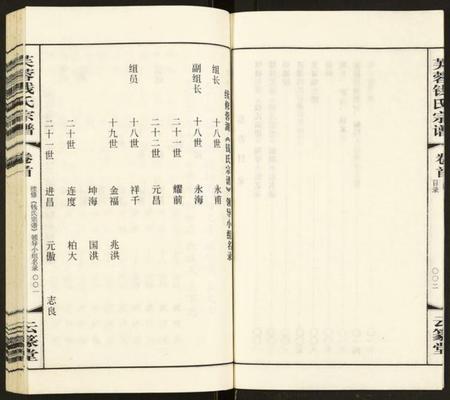 芙蓉钱氏宗谱
卷首
目录
〇〇二
云篆堂
续修蓉湖《钱氏宗谱》领导小组名录
组长 十八世 永甫
副组长 十八世 永海
二十一世 耀前
二十二世 元昌
组员 十八世 祥千
十九世 金福 兆洪
坤海 国洪
二十世 连度 柏大
二十一世 进昌 元傲 志良
芙蓉钱氏宗谱
卷首
续修《钱氏宗谱》领导小组名录
〇〇一
云篆堂